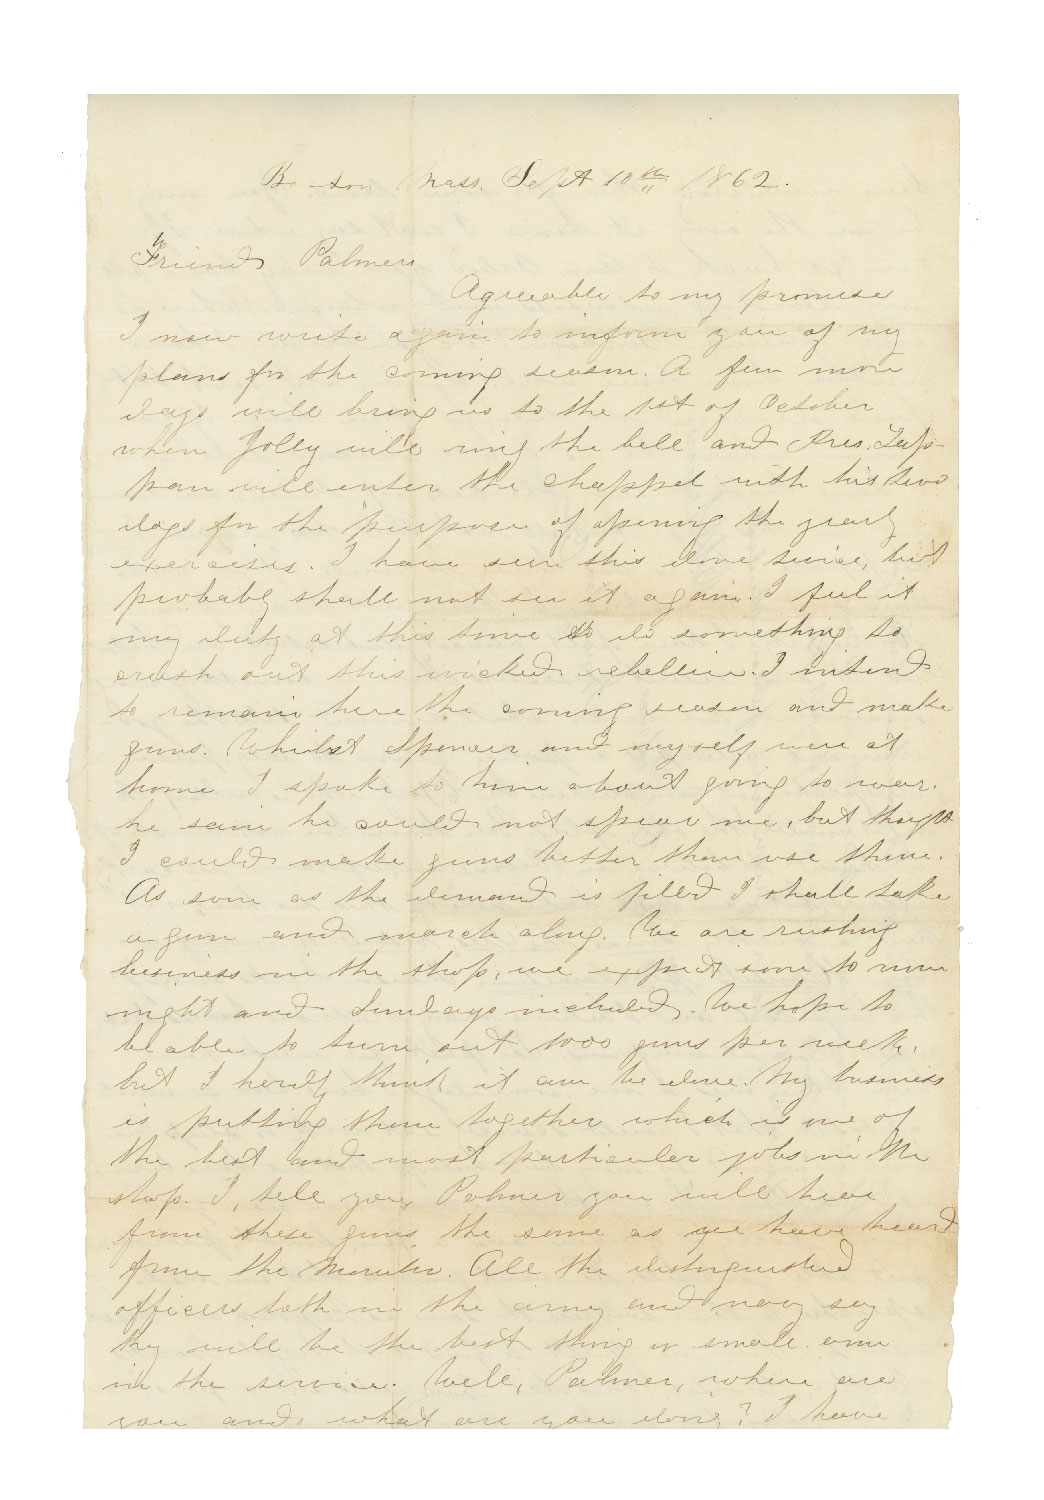 B son Mass. Sept 10th 1862.
Friend Palmer
Agreeable to my promise
I now write again to inform you of my
plans for the coming season. A few more
days will bring us to the 1st of October
when Jolly will ring the bell and Pres. Tap-
pan will enter the chappel with his two
dogs for the purpose of opening the yearly
exercises. I have seen this done twice, but
probably shall not see it again. I feel it
my duty at this time to do something to
crush out this wicked rebellion. I intend
to remain here the coming season and make
guns. Whilst Spencer and myself were at
home I spoke to him about going to war.
he said he could not spear me, but thought
I could make guns better than use them.
As soon as the demand is filled I shall take
a gun and march along. We are rushing
business in the shop, we expect soon to run
night and Sundays included. We hope to
be able to turn out 1000 guns per week,
but I herdly think it can be done. My business
is putting them together which is one of
the best and most particuler jobs in the
shop. I, tell you, Palmer you will hear
from these guns the same as we have heard
from the Moniter. All the distinguished
officers both in the army and navy say
they will be the best thing in small arm
in the service. Well, Palmer, where are
you and what are you doing? I have